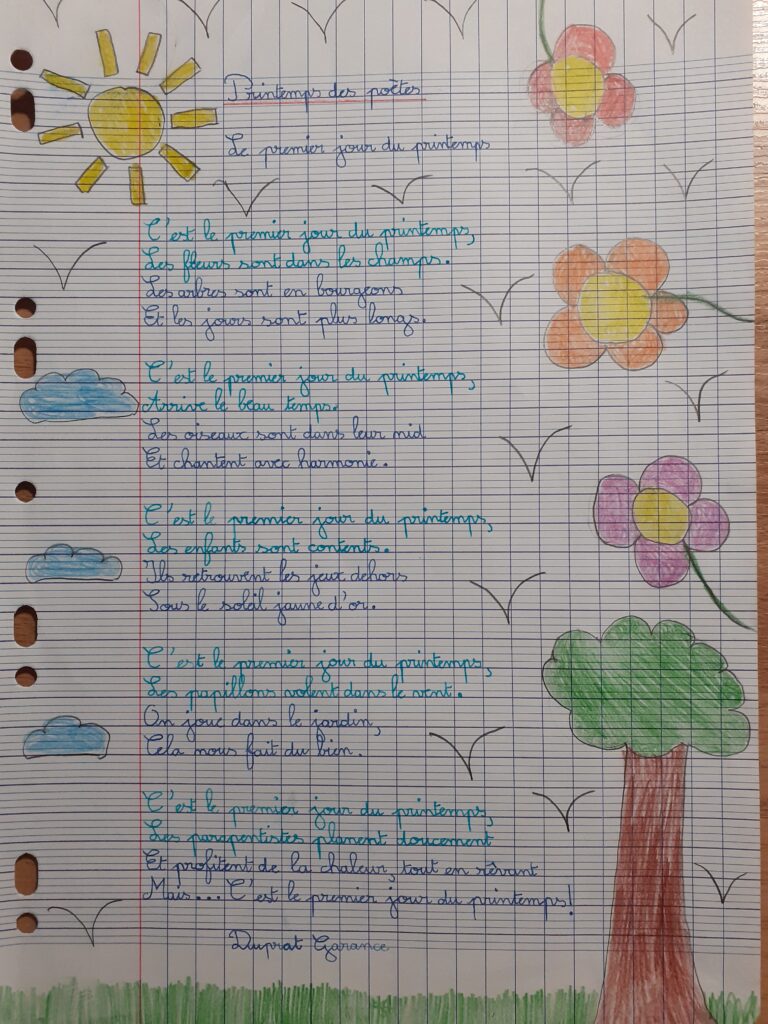 Printemps des poètes
Le premier jour du printemps
C'est le premier jour du printemps,
Les fleurs sont dans les champs.
Les arbres sont en bourgeons
Et les jours sont plus longs.
C'est le premier jour du printemps,
Arrive le beau temps.
Les oiseaux sont dans leur nid
Et chantent avec harmonie.
C'est le premier jour du printemps,
Les enfants sont contents.
Ils retrouvent les jeux dehors
Sous le soleil jaune d'or.
C'est le premier jour du printemps,
Les papillons volent dans le vent.
On joue dans le jardin,
Cela nous fait du bien.
C'est le premier jour du printemps,
Les parapentistes planent doucement
Et profitent de la chaleur, tout en rêvant
Mais... C'est le premier jour du printemps!
Duprat Garance